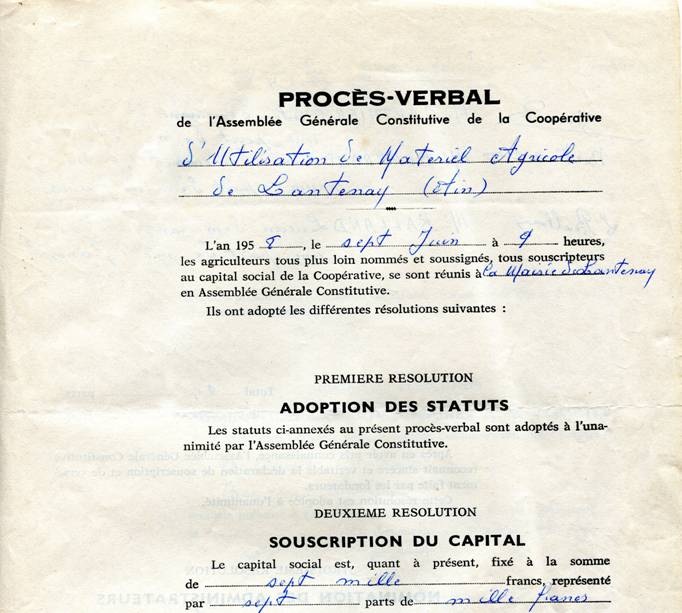 PROCÈS-VERBAL
de l'Assemblée Générale Constitutive de la Coopérative
d'Utilisation de Materiel Agricole
de Lantenay (Ain)
L'an 1958, le sept Juin à 9 heures,
les agriculteurs tous plus loin nommés et soussignés, tous souscripteurs
au capital social de la Coopérative, se sont réunis à la Mairie de Lantenay
en Assemblée Générale Constitutive.
Ils ont adopté les différentes résolutions suivantes :
PREMIERE RESOLUTION
ADOPTION DES STATUTS
Les statuts ci-annexés au présent procès-verbal sont adoptés à l'una-
nimité par l'Assemblée Générale Constitutive.
DEUXIEME RESOLUTION
SOUSCRIPTION DU CAPITAL
Le capital social est, quant à présent, fixé à la somme
de sept mille francs, représenté
par sept parts de mille francs